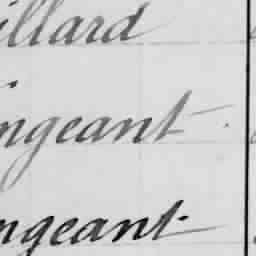 illard
ngeant
ngeant